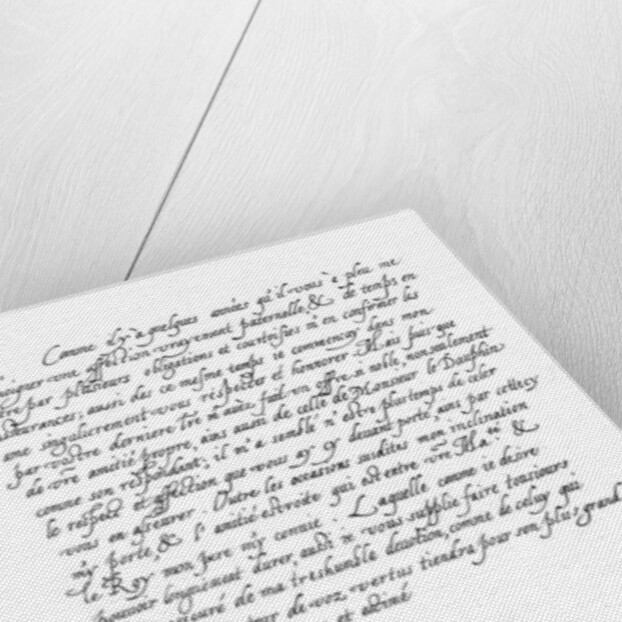 Comme il y'a quelques années qu'il vous à pleu me
-igner vine affection vrayement paternelle, & de temps en
-tre par plusieurs obligations et courtoisies m'en confirmer les
-surances; aussi des ce mesme temps ie commencay dens mon
ame singulierement vous respecter et honnorer. Mais puis que
par vostre derniere Tre m'auez fait en offre si noble, non seulement
de vre amitié propre, ains aussi de celle de Monsieur le Dauphin
comme son respondent; il m'a semblé n'estre plus temps de celer
le respect et affection que vous ay y deuant porté, ains par cettecy
vous en asseurer. Outre les occasions susdites mon inclination
m'y porte, & l'amitié estroite qui est entre vre Ma.té &
le Roy mon pere m'y conuie. Laquelle comme ie desire
pouuoir longuement durer, aussi ie vous supplie faire tousiours
asseuré de ma treshumble deuotion, comme de celuy qui
de voz vertus tiendra pour son plus grand
et estimé